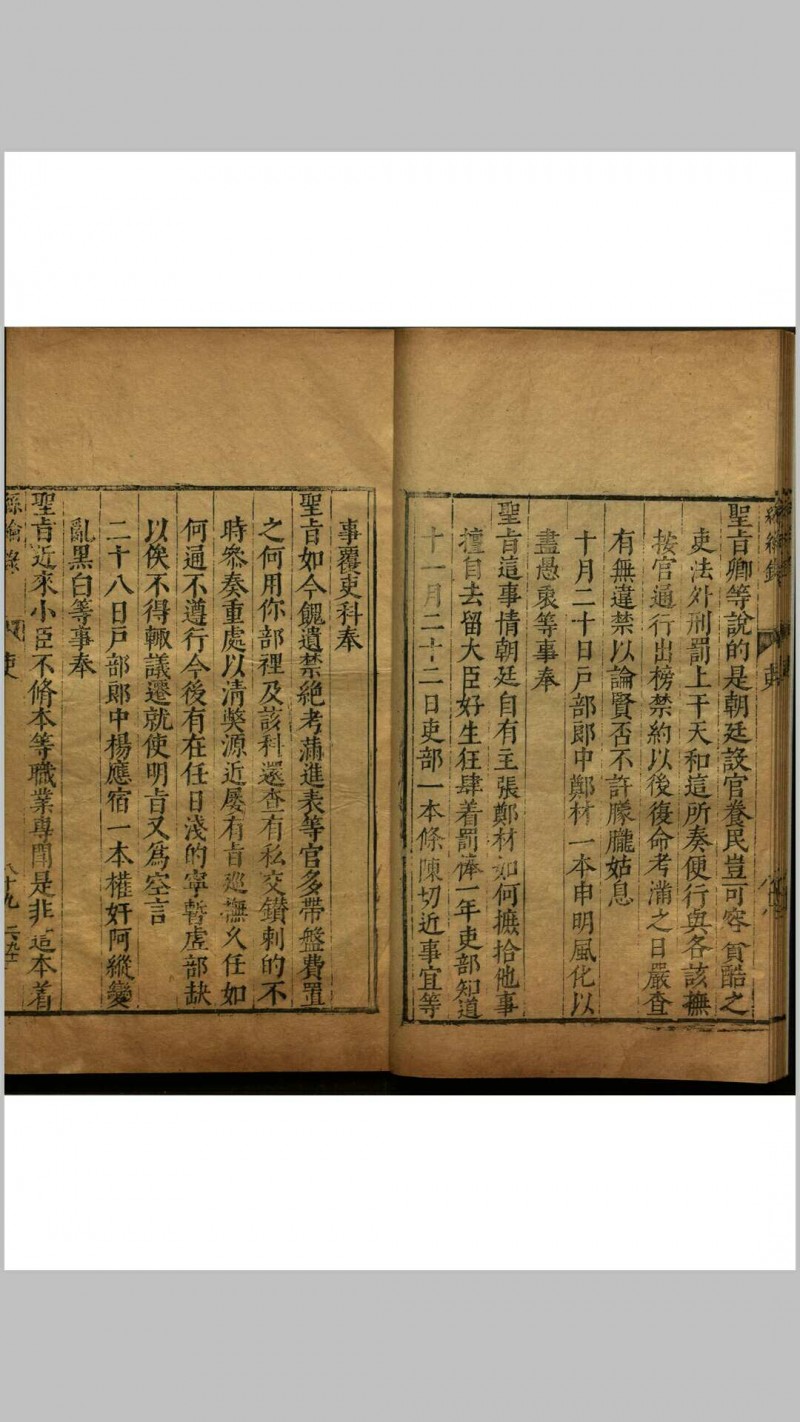 聖旨卿等說的是朝廷設官養民豈可容貪酷之
吏法外刑罰上干天和這所奏便行與各該撫
按官通行出榜禁約以後復命考滿之日嚴查
有無違禁以論賢否不許朦朧姑息
十月二十日戶部郎中鄭材一本申明風化以
盡愚衷等事奉
聖旨這事情朝廷自有主張鄭材如何摭拾他事
擅自去留大臣好生狂肆着罰俸一年吏部知道
十一月二十二日吏部一本條陳切近事宜等
事覆吏科奉
聖旨如今餽遺禁絕考滿進表等官多帶盤費置
之何用你部裡及該科還查有私交鑚刺的不
時叅奏重處以清獘源近屡有旨廵撫久任如
何通不遵行今後有在任日淺的寧暫虛部缺
以俟不得輙議遷就使明旨又爲空言
二十八日戶部郎中楊應宿一本權奸阿縱變
亂黑白等事奉
聖旨近來小臣不脩本等職業專閗是非這本着
絲綸錄 吏 八十九